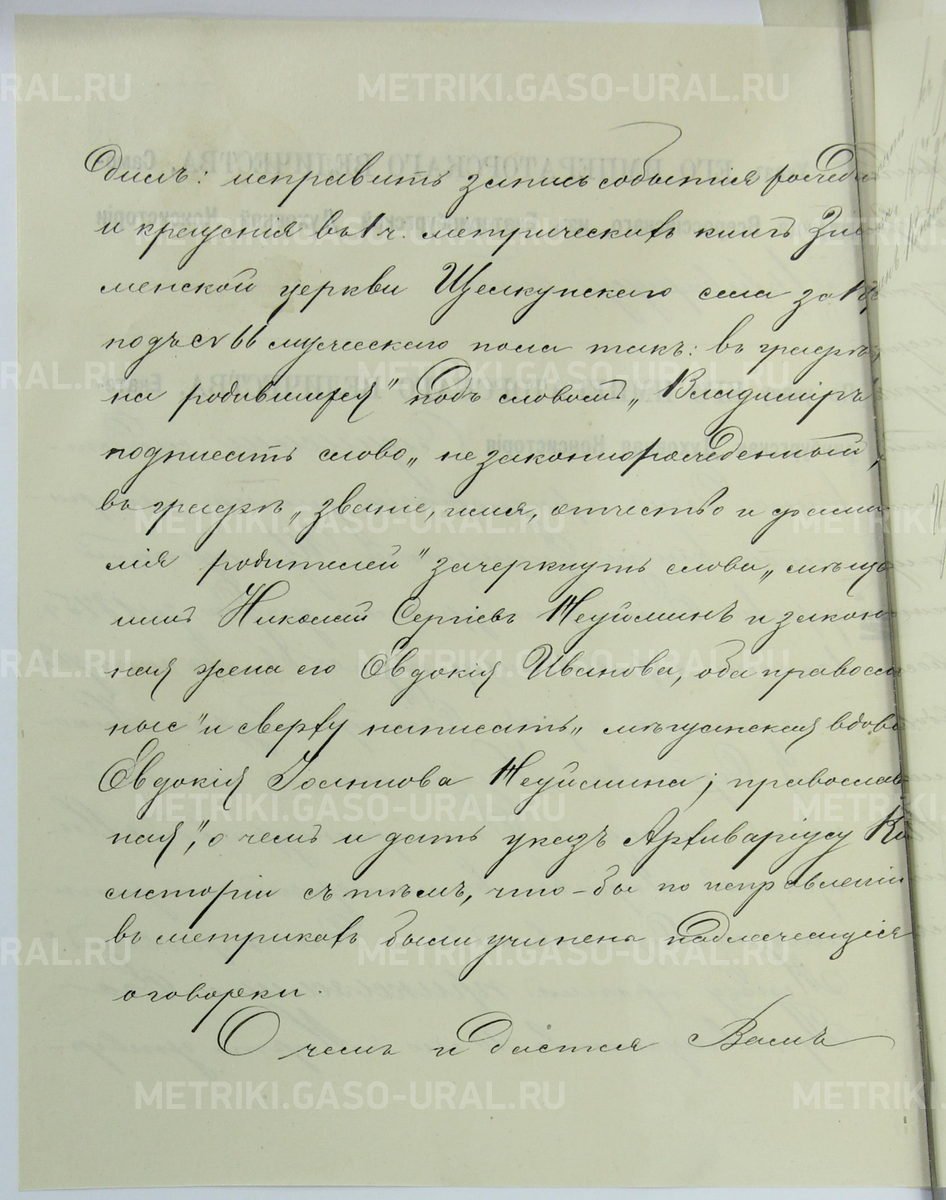 дилъ: исправить запись событiя рожде
и крещенiя въ 1 ч. метрическихъ книгъ Зна
менской церкви Щелкунскаго села за
подъ № 66 мужескаго пола такъ: въ графѣ
на родившихся" подъ словомъ „Владимiръ"
подписать слово „незаконнорожденный",
въ графѣ „званiе, имя, отчество и фами
лiя родителей" зачеркнуть слова „мѣща
нинъ Николай Сергiевъ Неуйминъ и закон
ная жена его Евдокiя Иванова, оба правосла
ные" и сверху написать „мѣщанская вдова
Евдокiя Iоаннова Неуймина; православ
ная", о чемъ и дать указъ Архиварiусу Ко
систорiи съ тѣмъ, что-бы по исправленiи
въ метрикахъ были учинены надлежащiя
оговорки.
О чемъ и дается Вамъ
METRIKI.GASO-URAL.RU